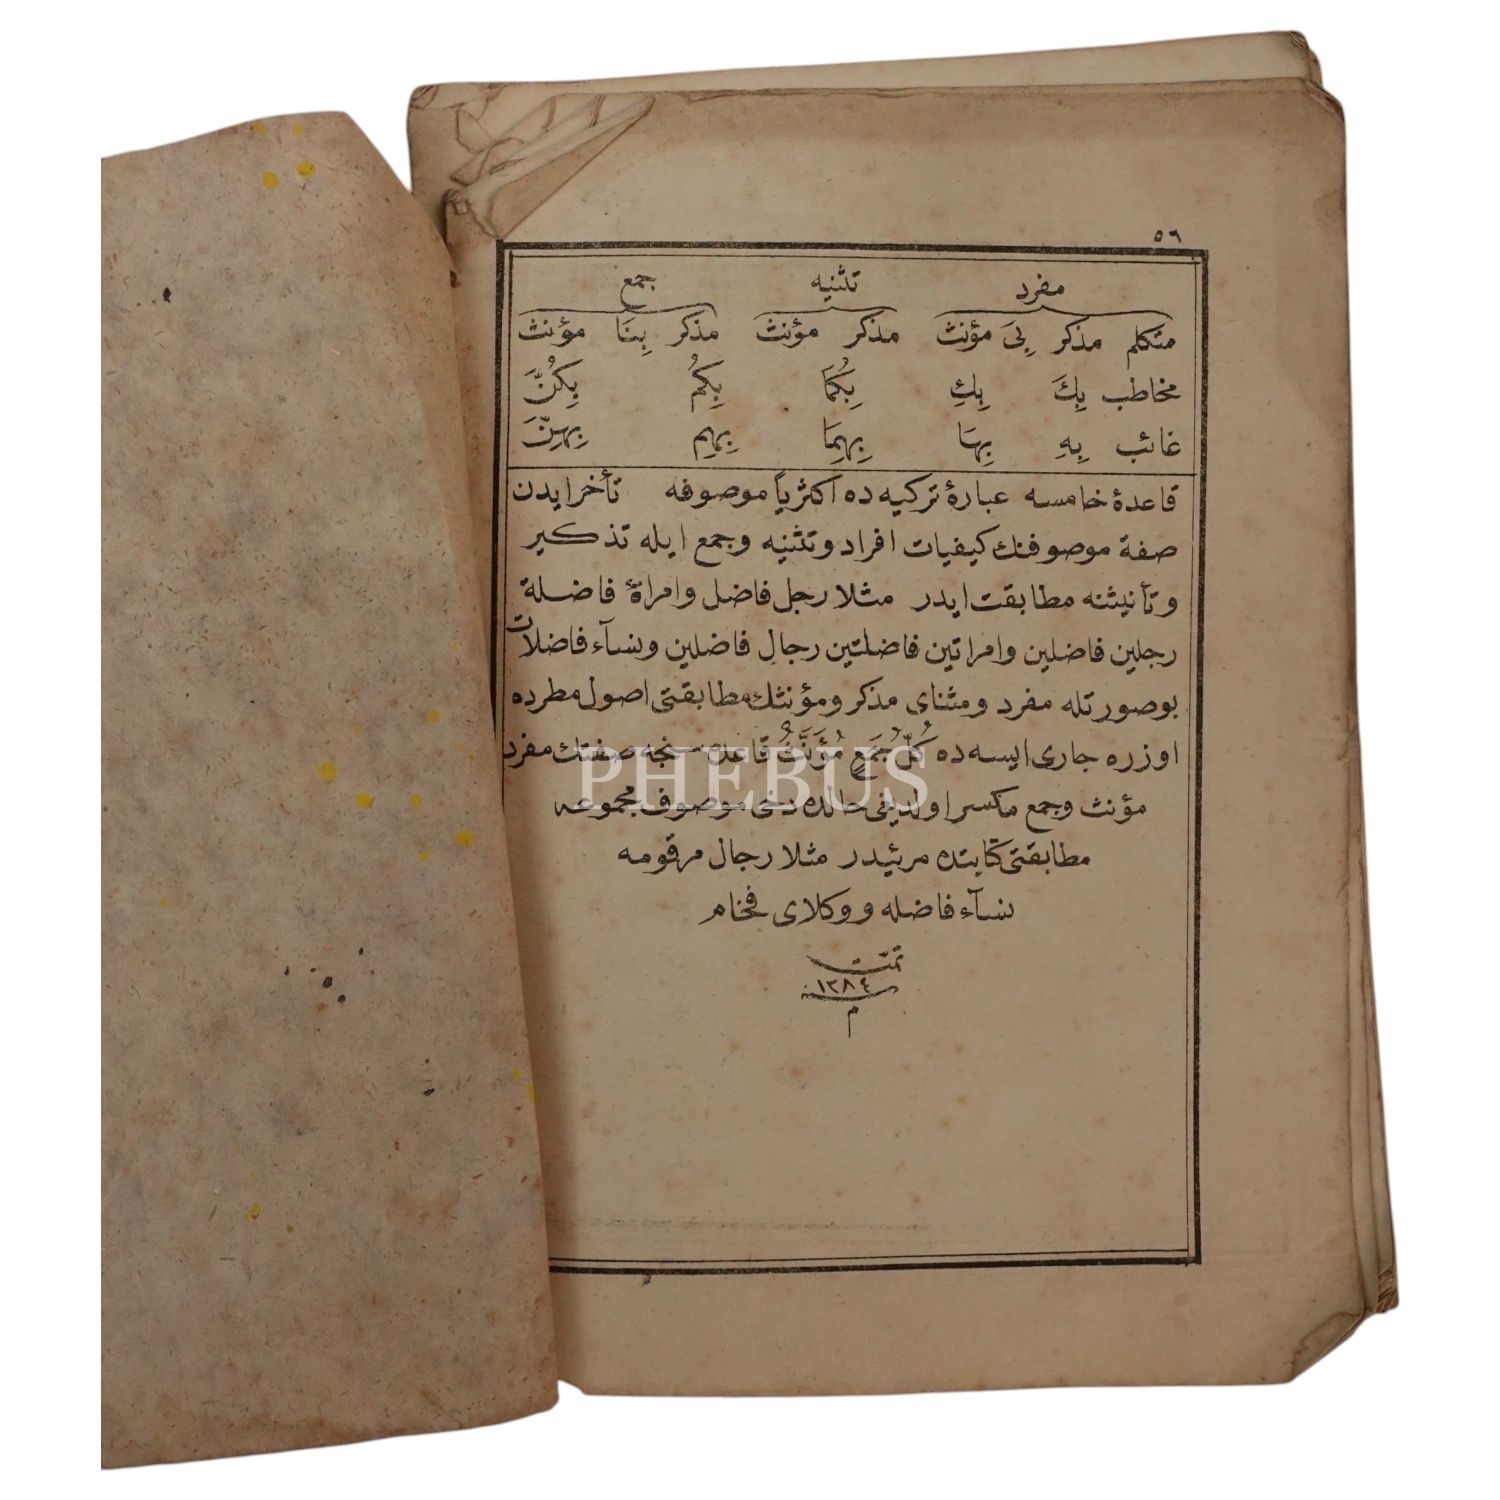 ٥٦
مفرد تثنیه جمع
متكلم مذكر بِیَ مؤنث مذكر مؤنث مذكر بِنَا مؤنث
مخاطب بِكَ بِكِ بِكُمَا بِكُمْ بِكُنَّ
غائب بِهِ بِهَا بِهِمَا بِهِم بِهِنَّ
قاعدهٔ خامسه عبارهٔ تركیه ده اكثریاً موصوفه تأخر ایدن
صفة موصوفنك كیفیات افراد و تثنیه و جمع ایله تذكیر
و تأنیثنه مطابقت ایدر مثلا رجل فاضل و امراة فاضلة
رجلین فاضلین و امراتین فاضلتین رجال فاضلین و نسآء فاضلات
بوصورتله مفرد و مثنای مذكر و مؤنثك مطابقتی اصول مطرده
اوزره جاری ایسه ده كُلُّ جُمَعٍ مُؤَنَّثُ قاعده سنجه صفتك مفرد
مؤنث و جمع مكسر اولدیغی حالده دخی موصوف مجموعه
مطابقتی كتابتده مرئیدر مثلا رجال مرقومه
نسآء فاضله و وكلای فخام
تمّت
سنه ١٢٨٤
م
PHEBUS